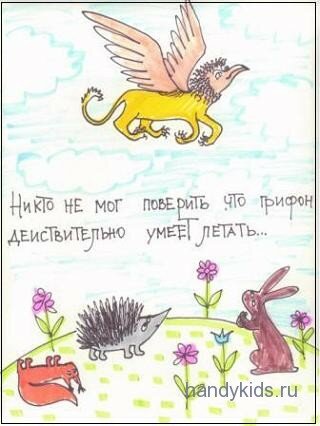 Никто не мог поверить что грифон
действительно умеет летать...
handykids.ru